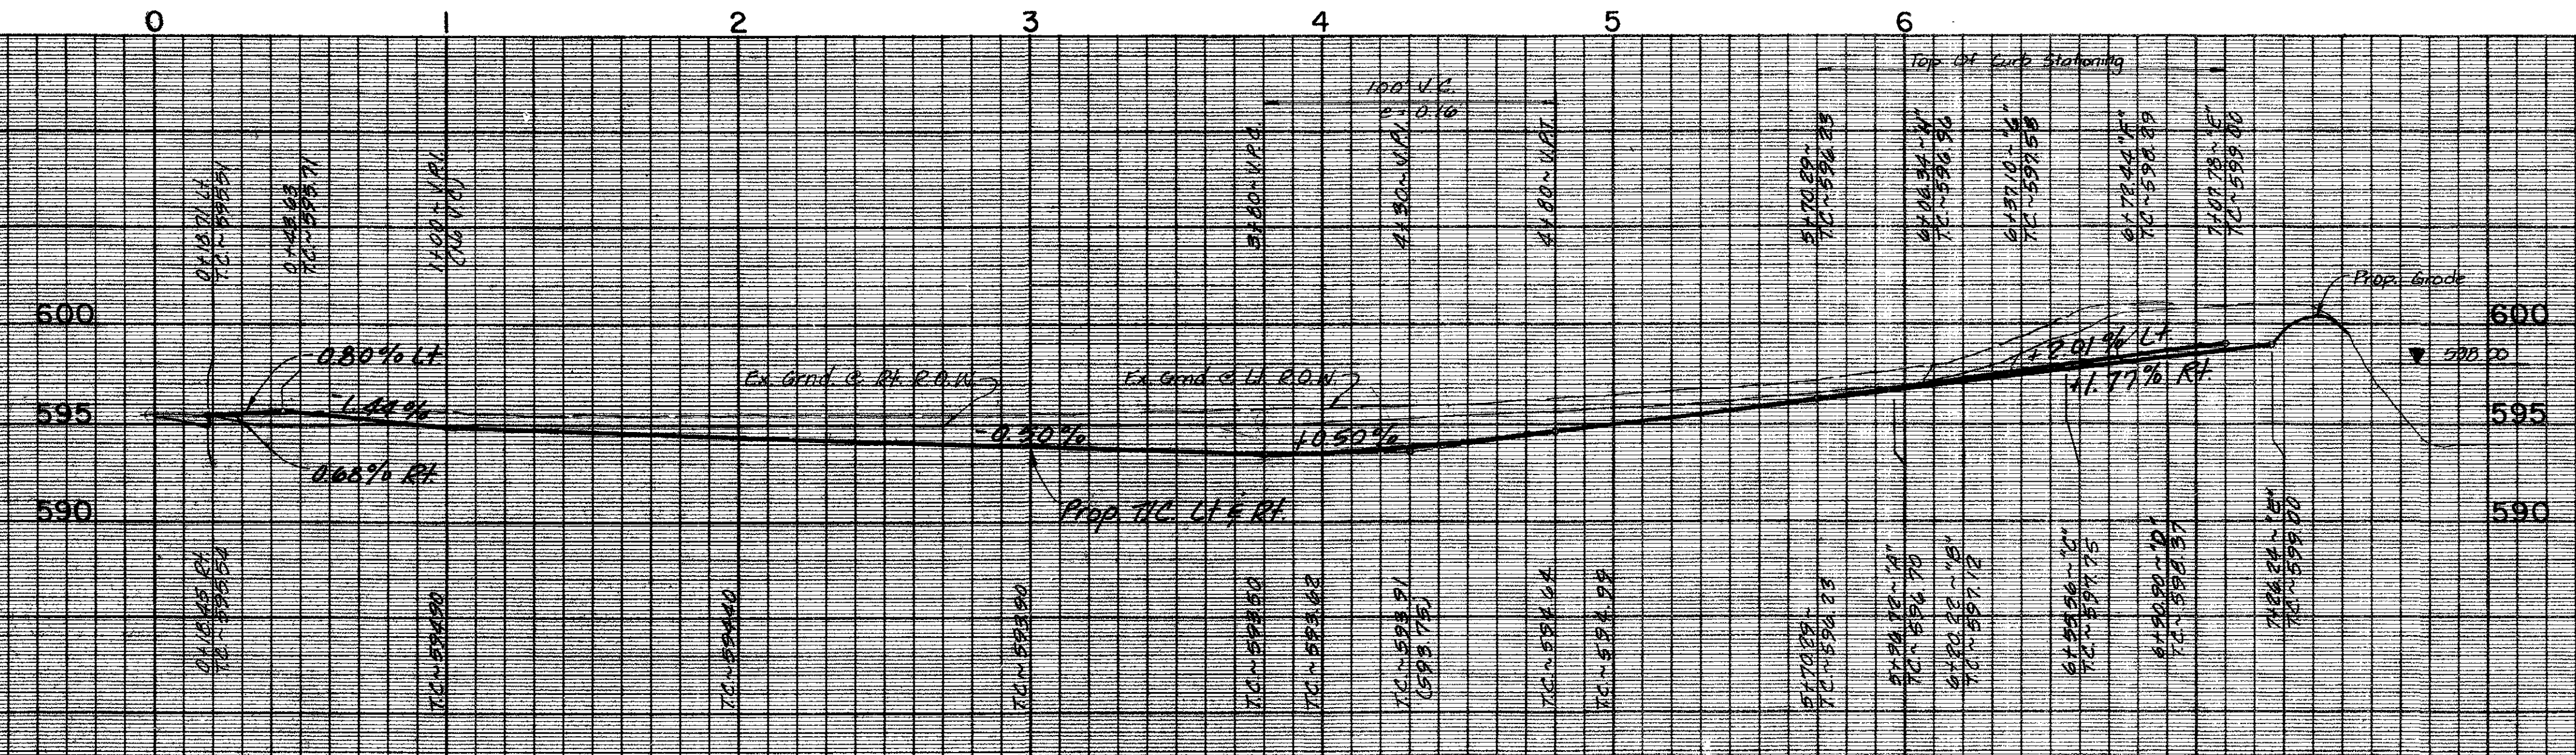 0 1 2 3 4 5 6
Top Of Curb Stationing
100' V.C.
e = 0.16'
0+18.71 Lt.
T.C.~595.51
0+43.63
T.C.~595.71
1+00~V.P.I.
(No V.C.)
3+80~V.P.C.
4+30~V.P.I.
4+80~V.P.T.
5+70.29~
T.C.~596.23
6+06.34~"H"
T.C.~596.96
6+37.10~"G"
T.C.~597.58
6+72.44~"F"
T.C.~598.29
7+07.78~"E"
T.C.~599.00
Prop. Grade
600
600
598.00
0.80% Lt.
+2.01% Lt.
Ex. Grnd. @ Rt. R.O.W.
Ex. Grnd @ Lt. R.O.W.
+1.77% Rt.
595
-1.44%
595
-0.50%
+0.50%
0.68% Rt.
590
Prop. T/C. Lt. & Rt.
590
0+18.45 Rt.
T.C.~595.54
T.C.~594.90
T.C.~594.40
T.C.~593.90
T.C.~593.50
T.C.~593.62
T.C.~593.91
(593.75)
T.C.~594.64
T.C.~594.99
5+70.29~
T.C.~596.23
5+96.72~"A"
T.C.~596.70
6+20.22~"B"
T.C.~597.12
6+55.56~"C"
T.C.~597.75
6+90.90~"D"
T.C.~598.37
7+26.24~"E"
T.C.~599.00